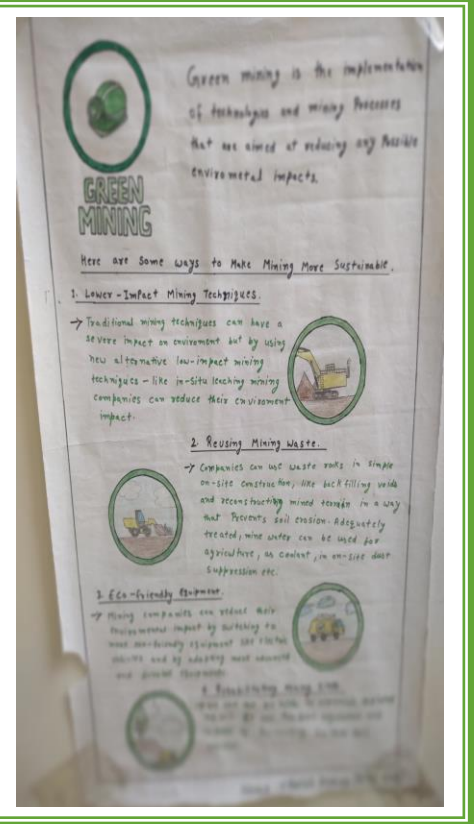 Green mining is the implementation
of technologies and mining Processes
that are aimed at reducing any Possible
envirometal impacts.
GREEN
MINING
Here are Some ways to Make Mining More Sustainable.
1. Lower-Impact Mining Techniques.
→ Traditional mining techniques can have a
severe impact on enviroment but by using
new alternative low-impact mining
techniques - like in-situ leaching mining
companies can reduce their enviroment
impact.
2. Reusing Mining Waste.
→ Companies can use waste rocks in simple
on-site construction, like backfilling voids
and reconstructing mined terrain in a way
that Prevents soil erosion. Adequately
treated, mine water can be used for
agriculture, as coolant, in on-site dust
suppression etc.
3. Eco-friendly Equipment.
→ Mining companies can reduce their
environmental impact by switching to
more eco-friendly equipment like electric
and by adopting most advanced
and
4.